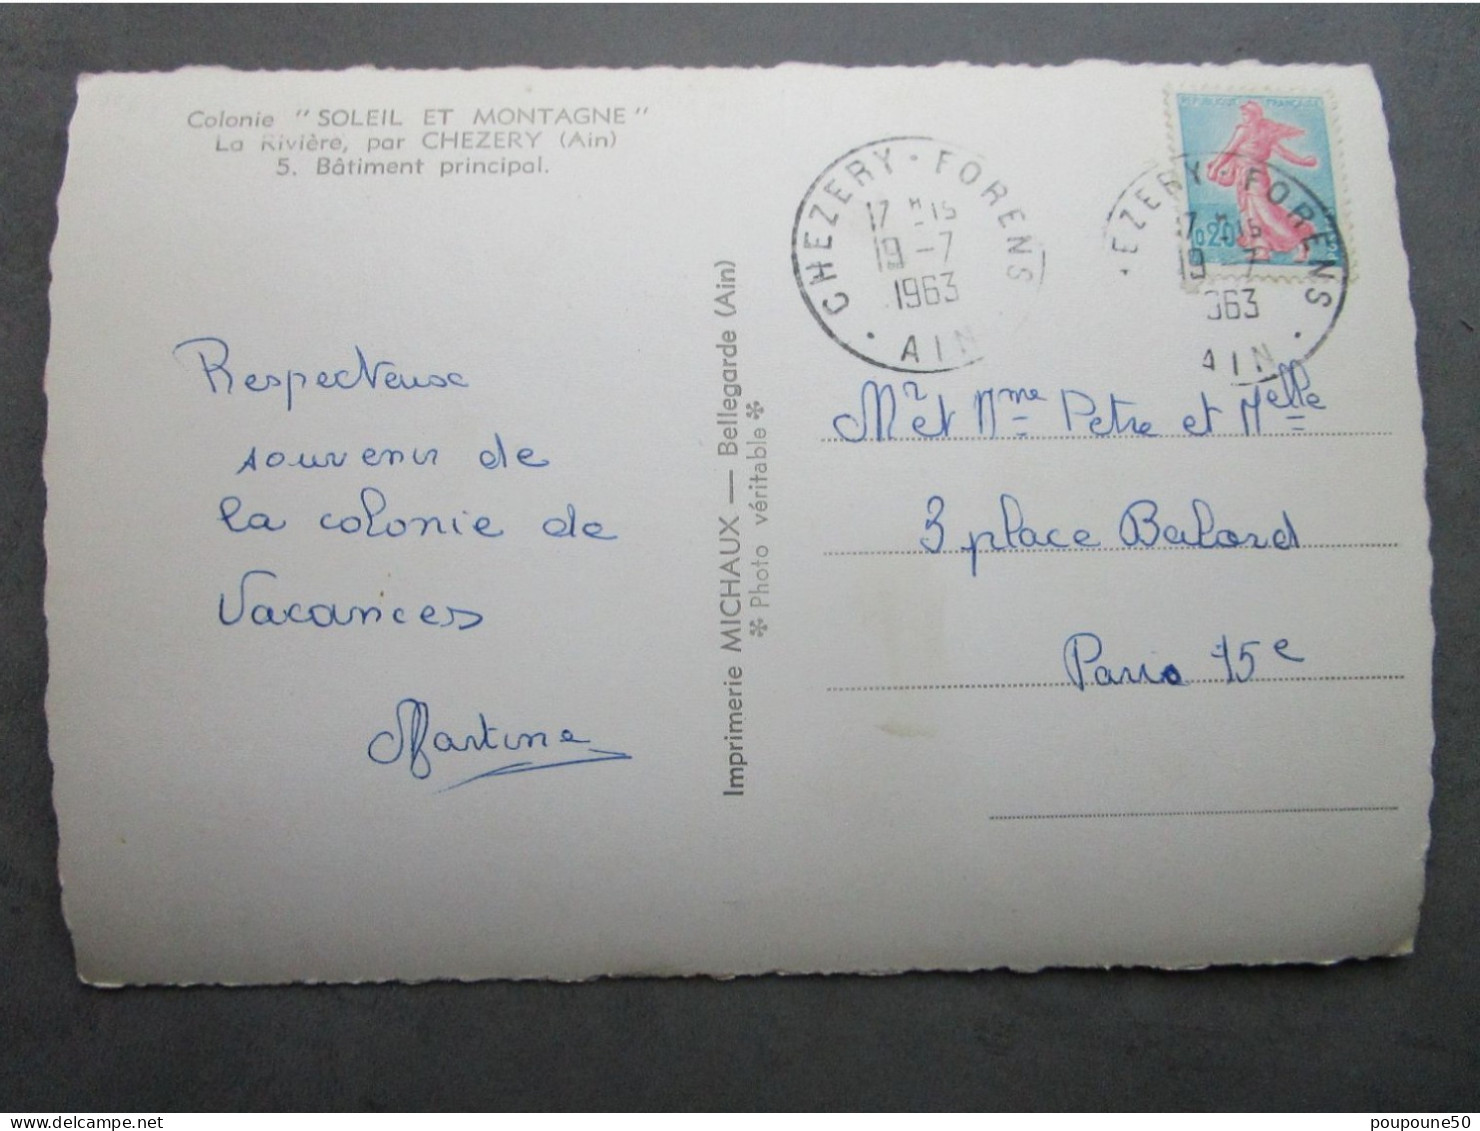 Colonie "SOLEIL ET MONTAGNE"
La Rivière, par CHEZERY (Ain)
5. Bâtiment principal.
Respectueux
souvenir de
la colonie de
Vacances
Martine
Imprimerie MICHAUX — Bellegarde (Ain)
✻ Photo véritable ✻
CHEZERY - FORENS
17 H 15
19 - 7
1963
AIN
REPUBLIQUE FRANÇAISE
0,20
EZERY - FORENS
17 H 15
19 - 7
963
AIN
Mr et Mme Petre et Melle
3 place Balard
Paris 15e
poupoune50
delcampe.net